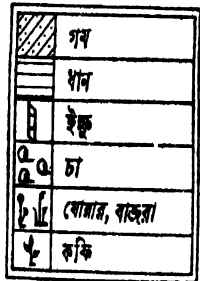 গম
ধান
ইক্ষু
চা
যোয়ার, বাজরা
কফি